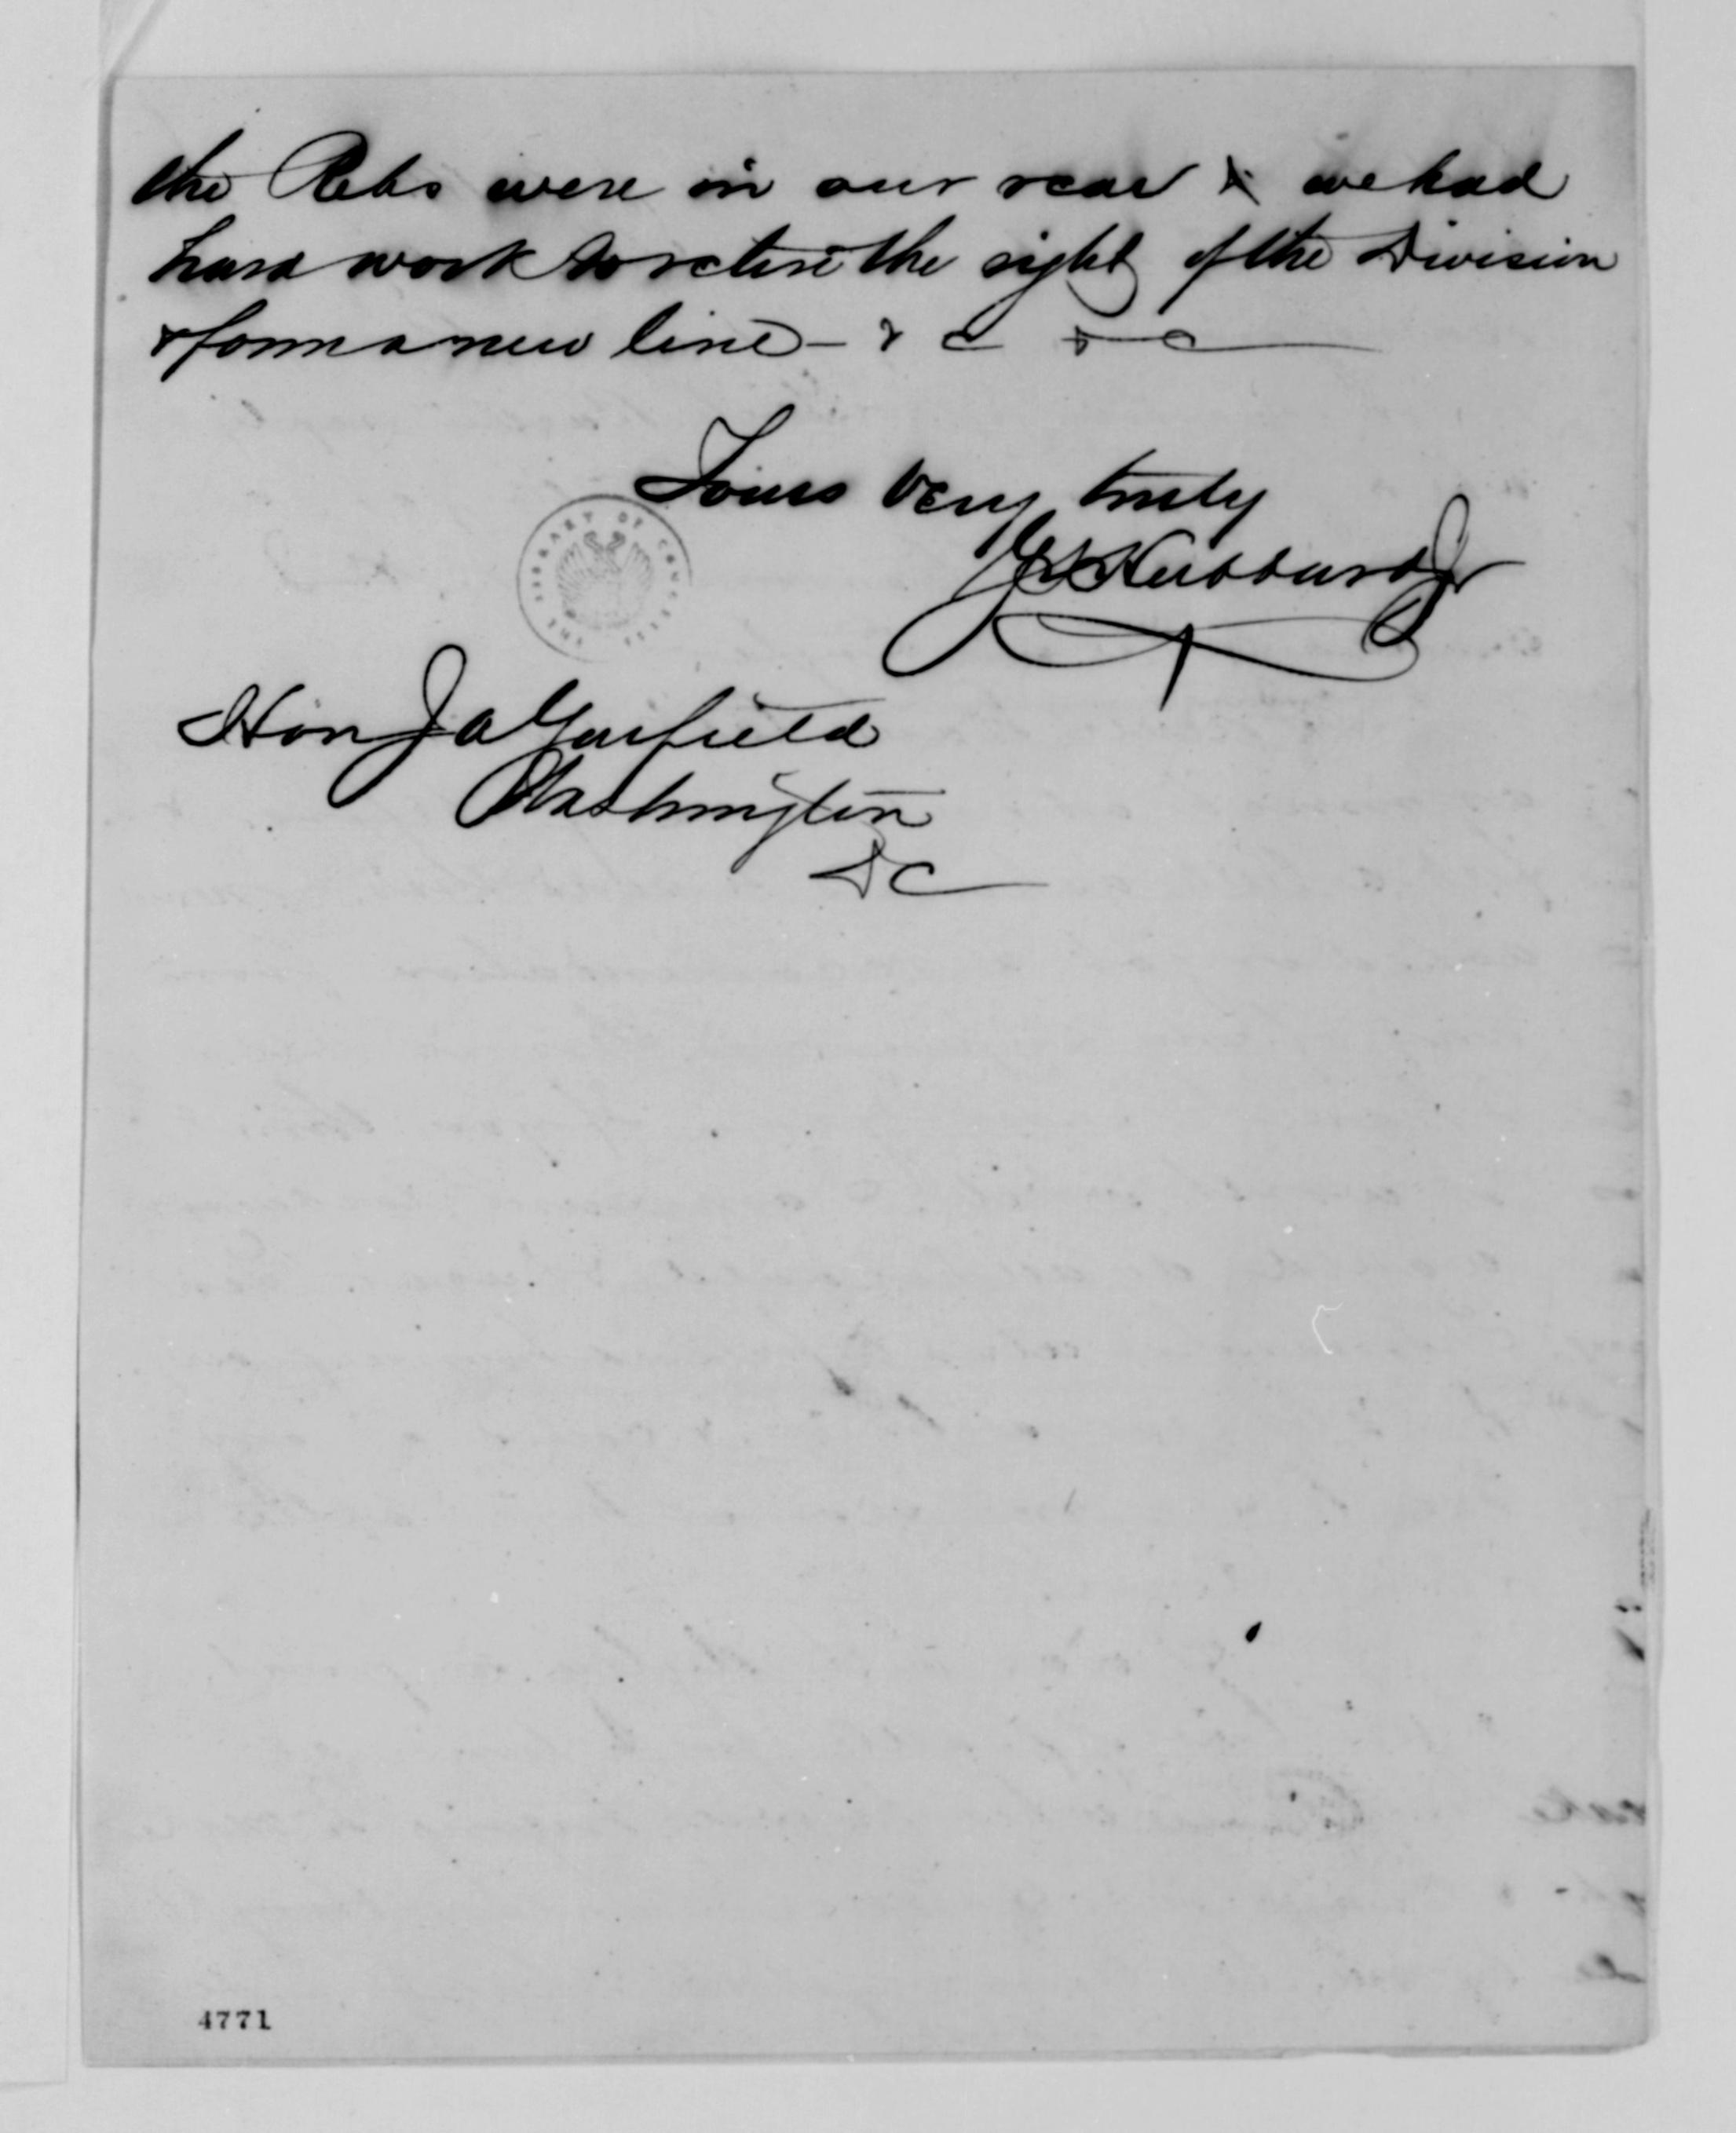 the Rebs were in our rear & we had
hard work to retire the right of the Division
& form a new line – & c & c
Yours very truly
Hubbard Jr
THE LIBRARY OF CONGRESS
Hon J A Garfield
Washington
D C
4771